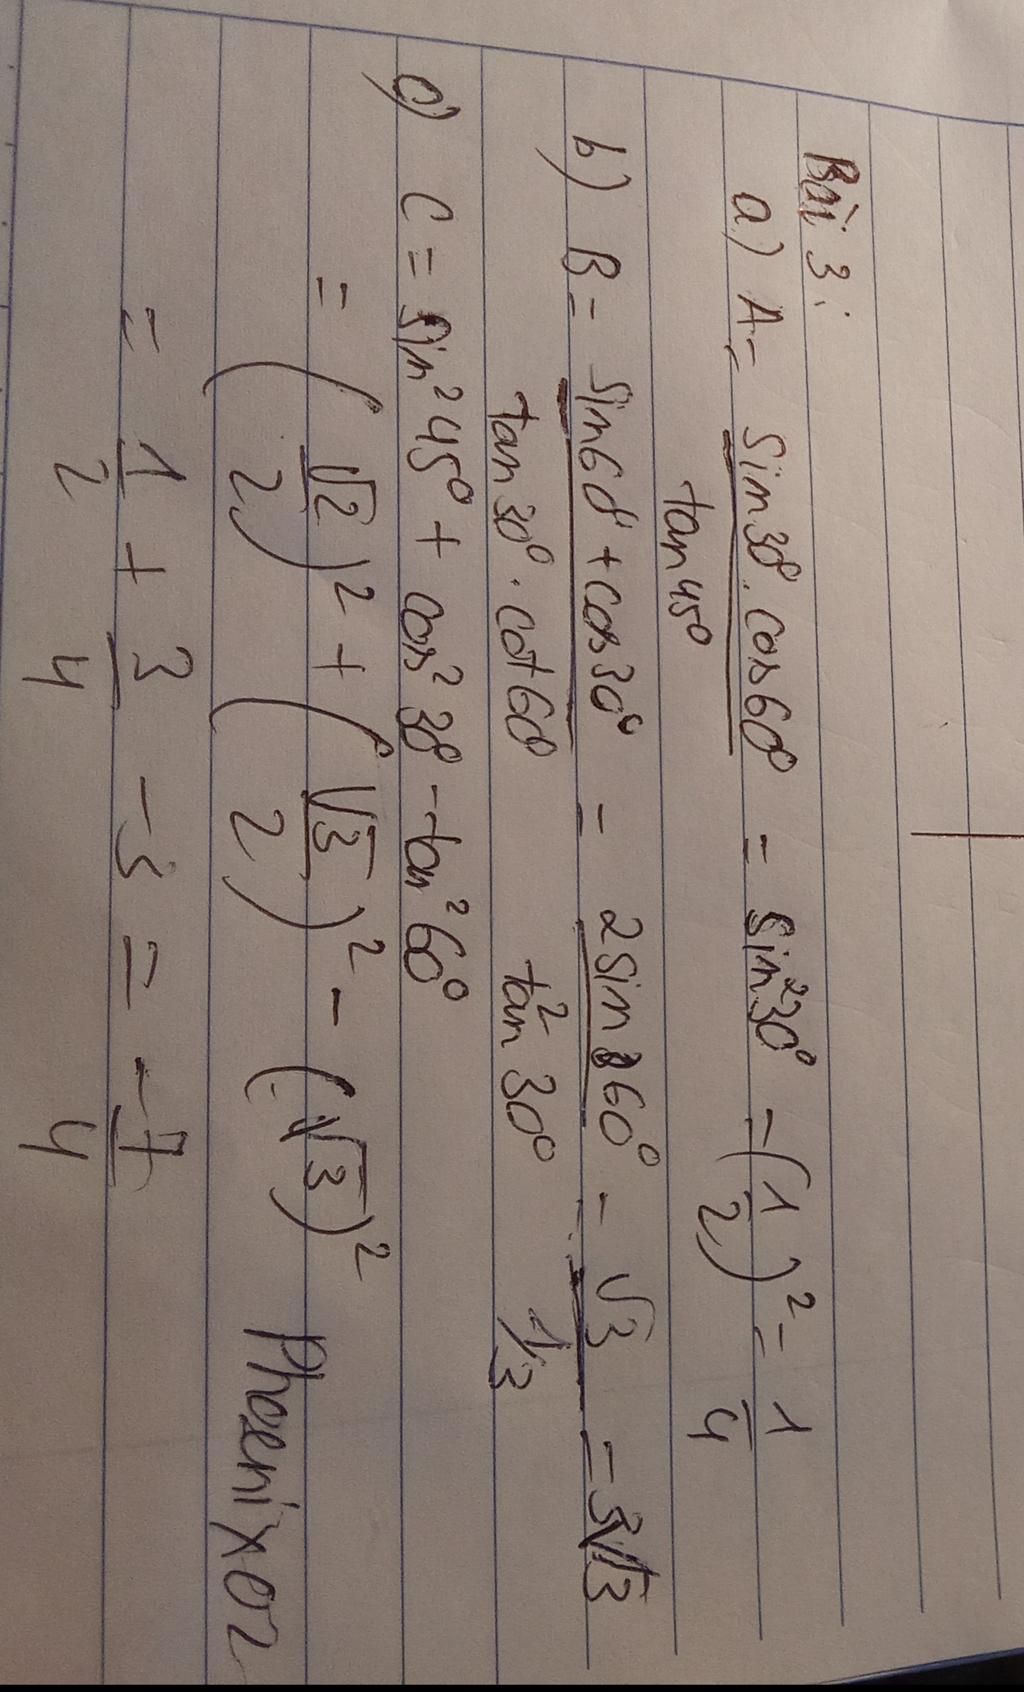 Bài 3:
a) A = sin30°.cos60° / tan45° = sin²30° = (1/2)² = 1/4
b) B = sin60° + cos30° / tan30°.cot60° = 2sin60° / tan²30° = √3 / 1/3 = 3√3
c) C = sin²45° + cos²30° - tan²60°
= (√2/2)² + (√3/2)² - (√3)²
= 1/2 + 3/4 - 3 = -7/4
Phoenix02